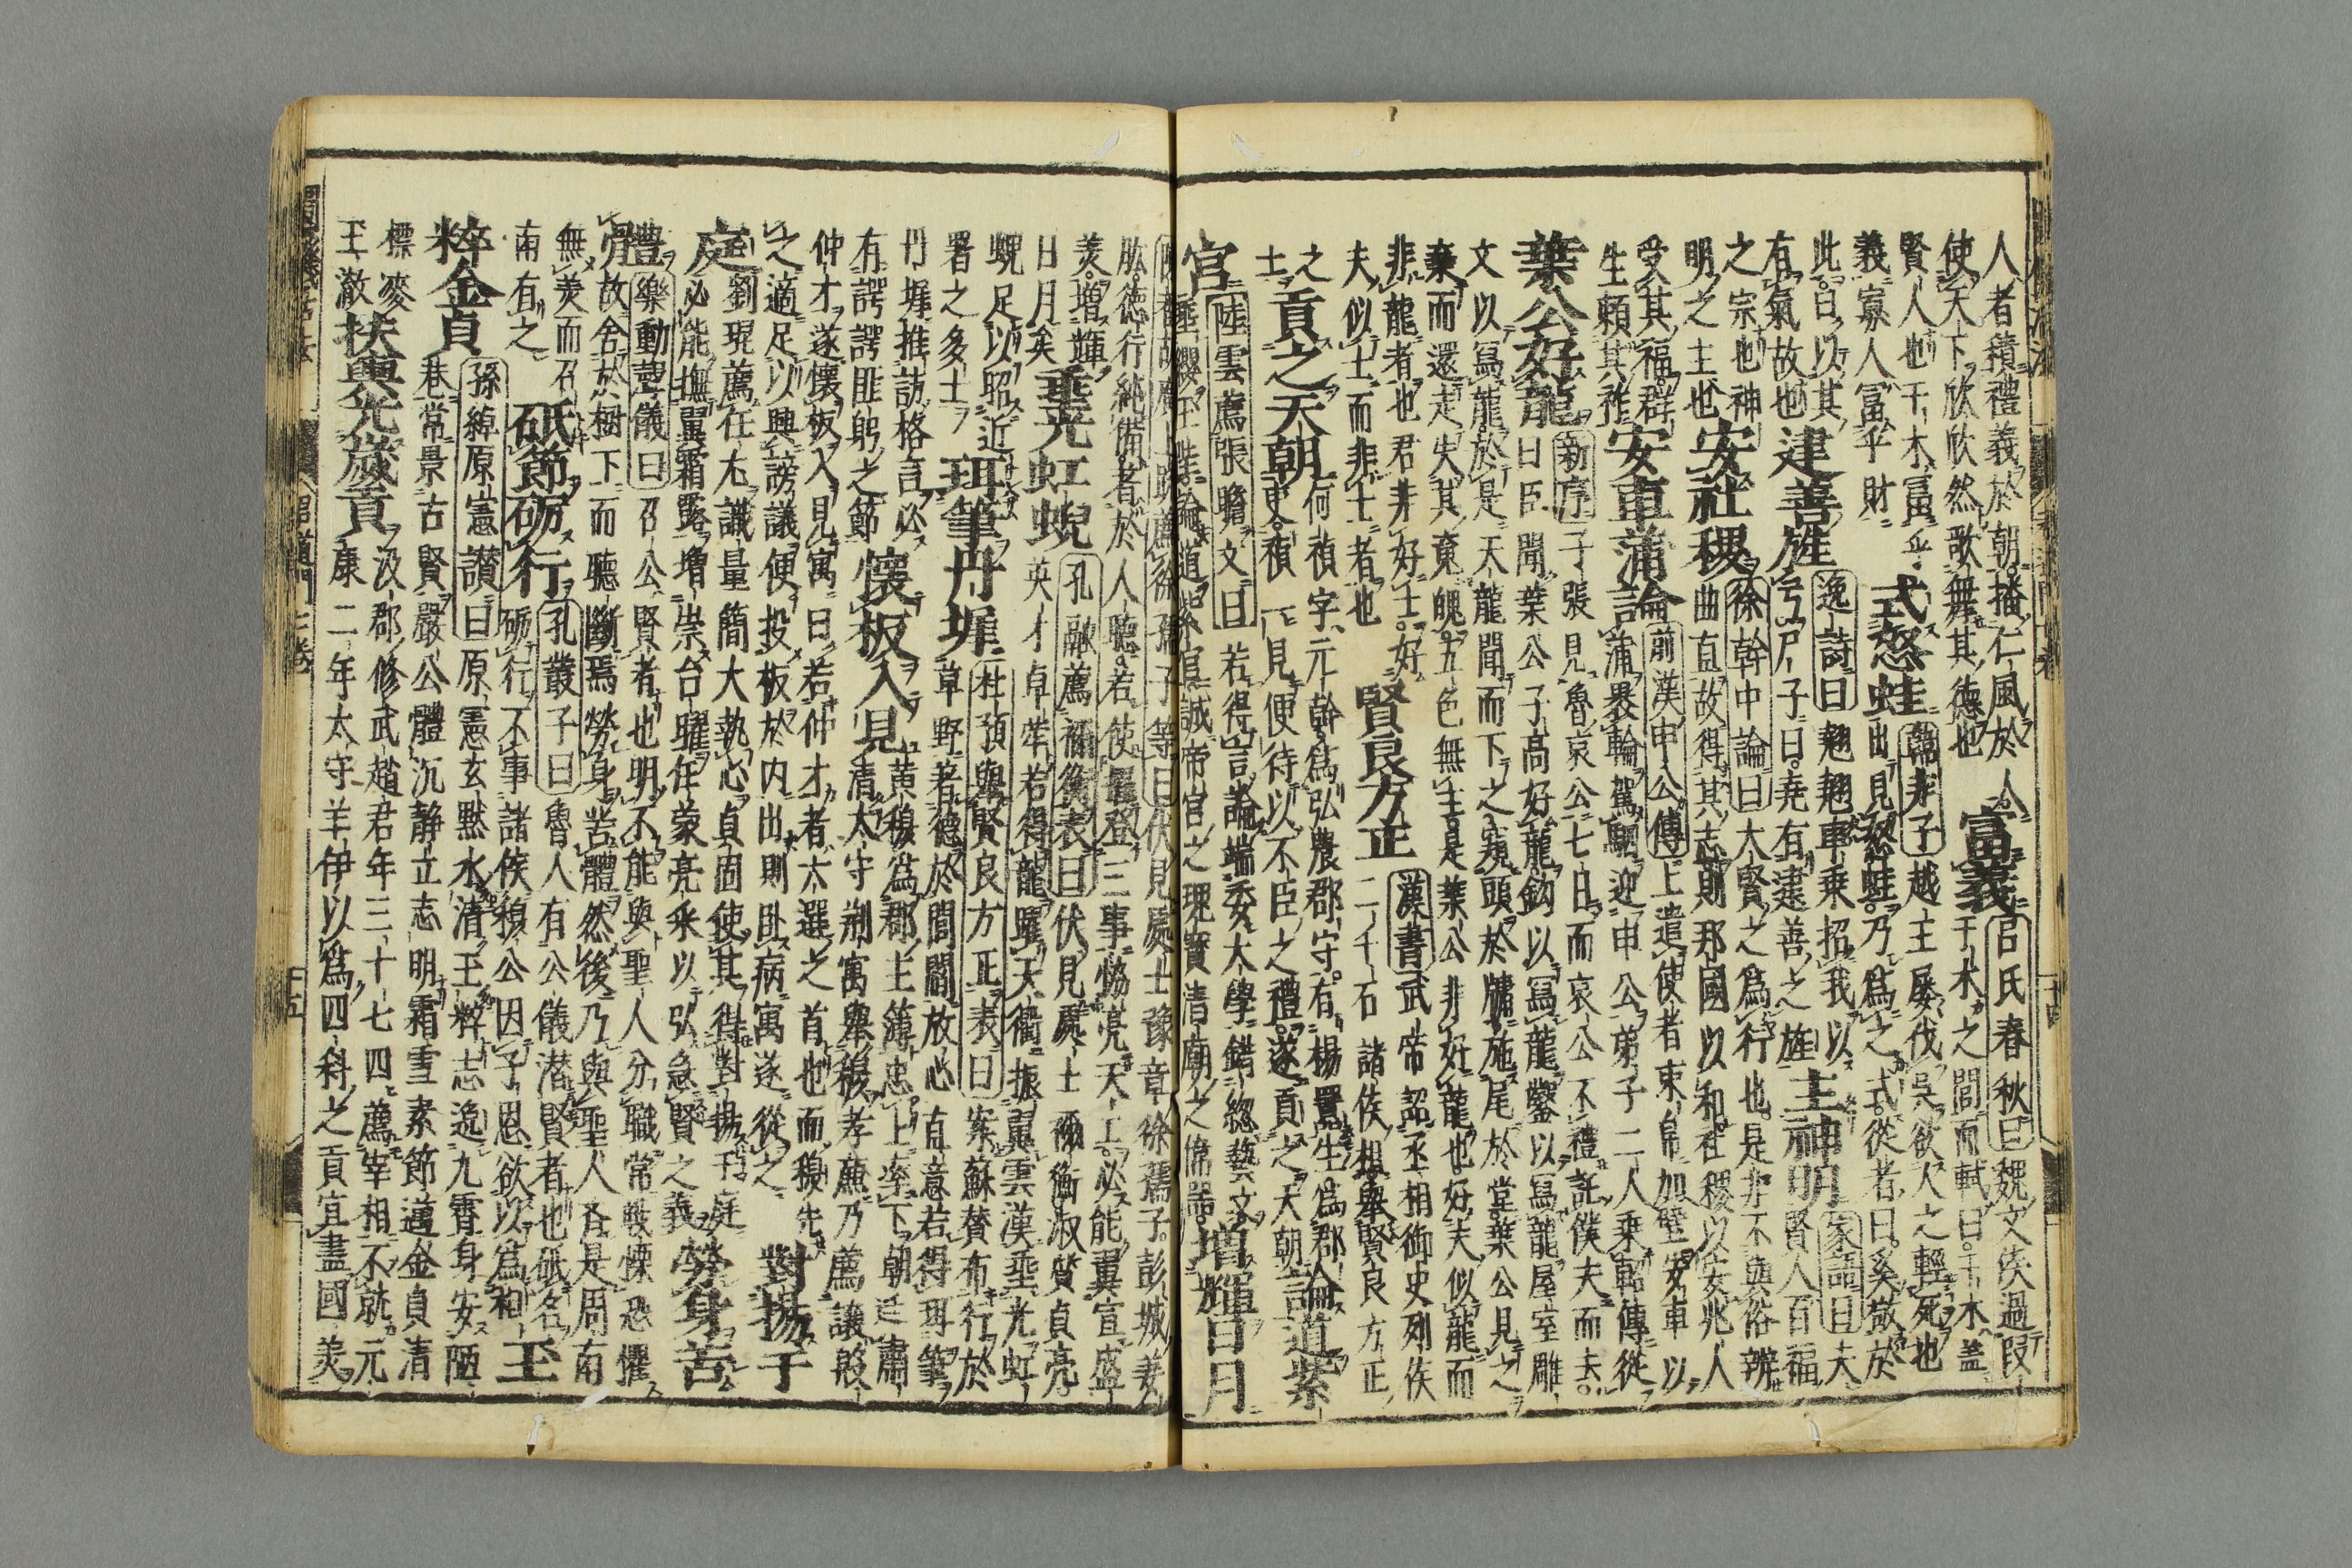 人者積禮義於朝播仁風於人
使天下欣欣然歌舞其德也 富義 呂氏春秋曰魏文侯過段
賢人也干木富乎 干木之閭而軾曰干木蓋
義寡人富乎財 式怒蛙 韓非子越王屡伐吳欲人之輕死也
此曰以其 出見怒蛙乃爲之式從者曰奚敬於
有氣故也 建善旌 逸詩曰翹翹車乘招我以
之宗也神 弓尸子曰堯有建善之旌 主神明 家語曰夫
明之主也 安社稷 徐幹中論曰大賢之爲行也是非不與俗辨
受其福群 曲直故得其志則邦國以和社稷以安兆人
生賴其祚 安車蒲論 前漢申公傳上遣使者束帛加璧安車以
蒲裹輪駕駟迎申公弟子二人乘軺傳從
葉公好龍 新序子張見魯哀公七日而哀公不禮託僕夫而去
曰臣聞葉公子高好龍鈎以寫龍鑿以寫龍屋室雕
文以寫龍於是天龍聞而下之窺頭於牖施尾於堂葉公見之
棄而還走失其魂魄五色無主是葉公非好龍也好夫似龍而
非龍者也君非好士好
夫似士而非士者也 賢良方正 漢書武帝詔丞相御史列侯
二千石諸侯相舉賢良方正
之 貢之天朝 何禎字元幹爲弘農郡守有楊囂生爲郡
士 吏禎一見便待以不臣之禮遂貢之天朝 論道紫
宮 陸雲薦張瞻文曰若得言論端委大學錯綜藝文
垂纓玉堦論道紫宮誠帝宮之瑰寶清廟之偉器 增輝日月
等曰伏見處士豫章徐孺子彭城姜
肱德行純備著於人聽若使擢登三事協亮天工必能翼宣盛
美增輝
日月矣 垂光虹蜺 孔融薦禰衡表曰伏見處士禰衡淑質貞亮
英才卓犖若得龍躍天衢振翼雲漢垂光虹
蜺足以昭近
署之多士 珥筆丹墀 杜預舉賢良方正表曰案蘇賛布行於
草野著德於閭閻放心直意若得珥筆
丹墀推訪格言必
有諤諤匪躬之節 懷板入見 黄穆爲郡主簿忠上率下朝廷肅
清太守謝寓舉穆孝廉乃薦讓殷
仲才遂懷板入見寓曰若仲才者太選之首也而穆先
之適足以興謗議便投板於内出則卧病寓遂從之 對揚于
庭 劉琨薦任尢識量簡大執心貞固使其得對揚于庭
必能撫翼霜露增崇台曜任蒙亮采以弘急賢之義 勞身苦
體 樂動聲儀曰召公賢者也明不能與聖人分職常戰慄恐懼
故舍於樹下而聽斷焉勞身苦體然後乃與聖人齊是周南
無美而召
南有之 砥節砺行 孔叢子曰魯人有公儀潜賢者也砥名
砺行不事諸侯穆公因子思欲以爲相 玉
粹金貞 孫綽原憲讃曰原憲玄黙水清玉粹志逸九霄身安陋
巷常景古賢嚴公體沉静立志明霜雪素節邁金貞清
標麥
王澈 扶輿光歲貢 汲郡修武趙君年三十七四薦宰相不就元
康二年太守羊伊以爲四科之貢宜盡國美